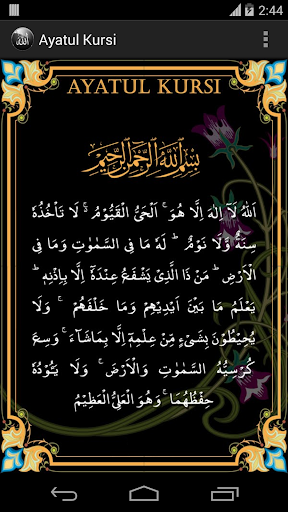 2:44
Ayatul Kursi
AYATUL KURSI
بِسْمِ اللهِ الرَّحْمٰنِ الرَّحِيْمِ
اَللّٰهُ لَآ اِلٰهَ اِلَّا هُوَ ۚ اَلْحَيُّ الْقَيُّوْمُ ۚ لَا تَاْخُذُهٗ
سِنَةٌ وَّلَا نَوْمٌ ؕ لَهٗ مَا فِي السَّمٰوٰتِ وَمَا فِي
الْاَرْضِ ؕ مَنْ ذَا الَّذِيْ يَشْفَعُ عِنْدَهٗٓ اِلَّا بِاِذْنِهٖ ؕ
يَعْلَمُ مَا بَيْنَ اَيْدِيْهِمْ وَمَا خَلْفَهُمْ ۚ وَلَا
يُحِيْطُوْنَ بِشَيْءٍ مِّنْ عِلْمِهٖٓ اِلَّا بِمَاشَآءَ ۚ وَسِعَ
كُرْسِيُّهُ السَّمٰوٰتِ وَالْاَرْضَ ۚ وَلَا يَـُٔوْدُهٗ
حِفْظُهُمَا ۚ وَهُوَ الْعَلِيُّ الْعَظِيْمُ